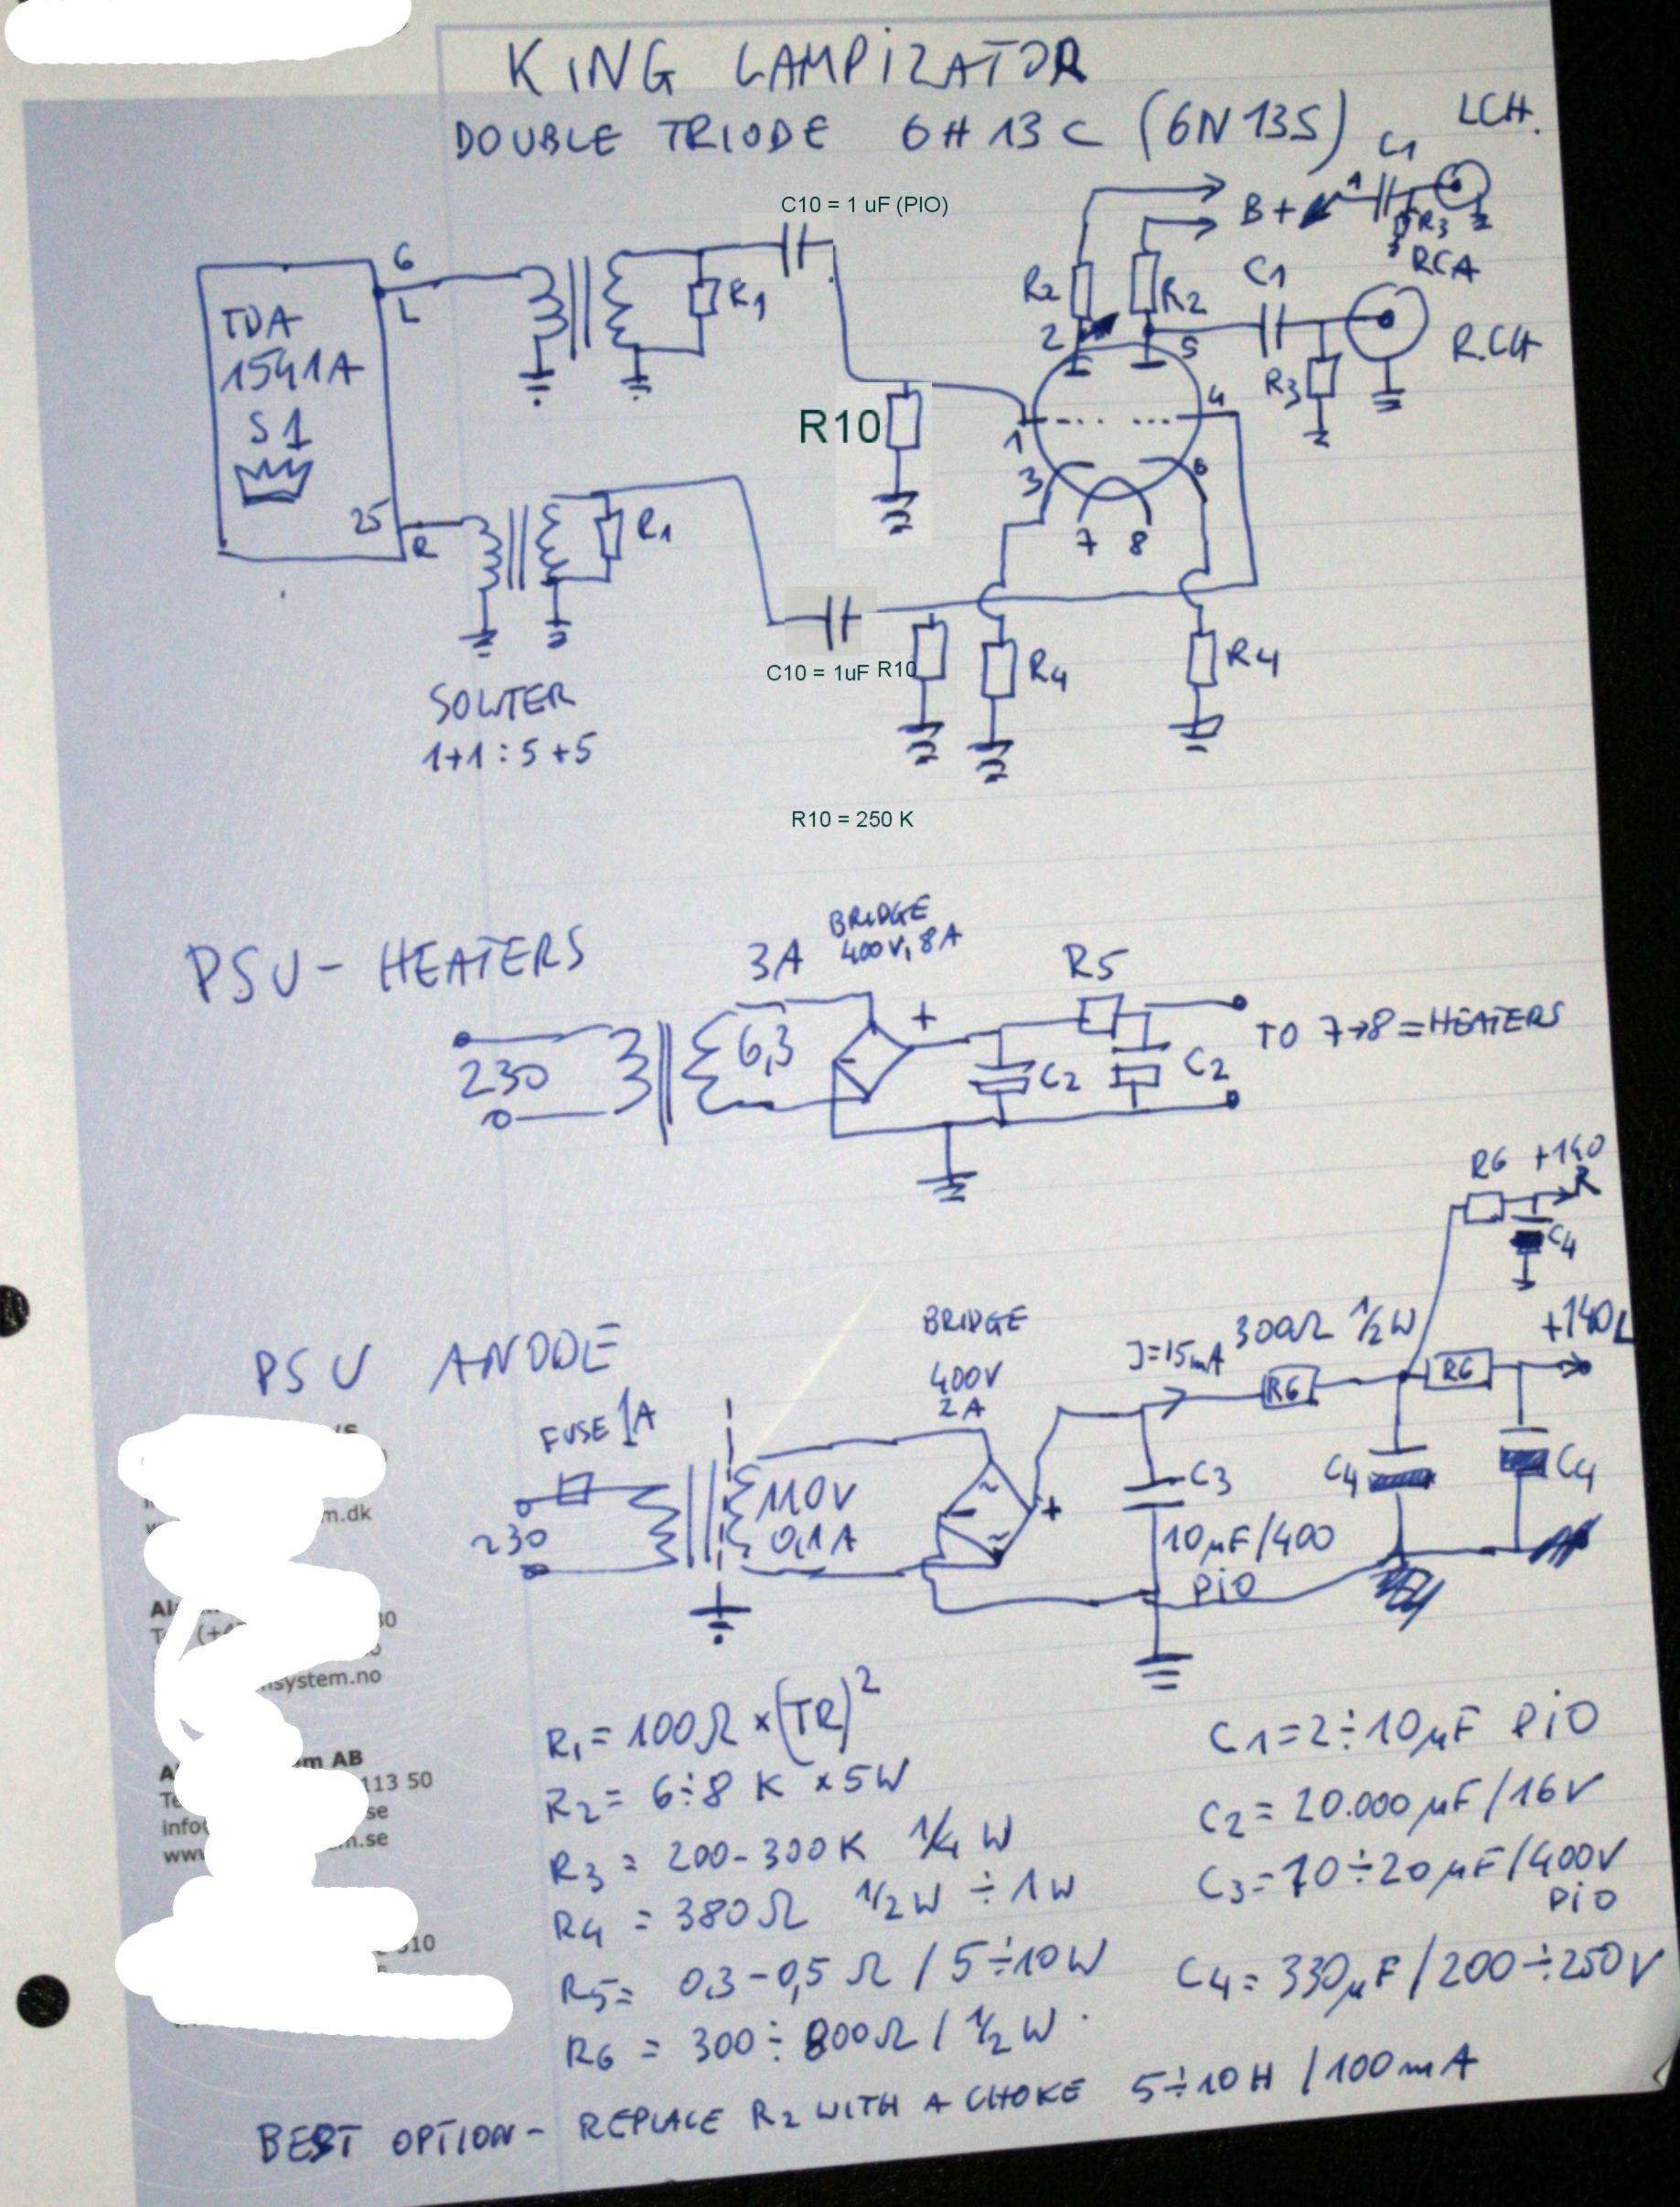 KING LAMPIZATOR
DOUBLE TRIODE 6H13C (6N13S)
LCH.
C1
C10 = 1 uF (PIO)
B+
1
R3
RCA
6
L
TDA
1541A
S1
R1
R2
2
R2
C1
5
R.CH
R3
R10
1
4
3
6
7 8
25
R
R1
C10 = 1uF R10
R4
R4
SOWTER
1+1:5+5
R10 = 250 K
PSU - HEATERS
3A
BRIDGE
400V, 8A
R5
+
6,3
-
230
C2
C2
TO 7→8 = HEATERS
R6 +140
R
C4
PSU ANODE
BRIDGE
400V
2A
J=15mA
300Ω 1/2W
+140L
R6
R6
FUSE 1A
230
110V
0,1A
~
-
~
+
C3
10µF/400
PIO
C4
C4
m.dk
system.no
AB
113 50
se
.se
info
www
R1 = 100Ω × (TR)²
R2 = 6÷8 K × 5W
R3 = 200-300K 1/4 W
R4 = 380Ω 1/2W ÷ 1W
R5 = 0,3-0,5 Ω / 5÷10W
R6 = 300÷800Ω / 1/2 W.
C1 = 2÷10µF PIO
C2 = 20.000 µF/16V
C3 = 10÷20µF/400V
PIO
C4 = 330µF/200÷250V
BEST OPTION - REPLACE R2 WITH A CHOKE 5÷10H /100mA